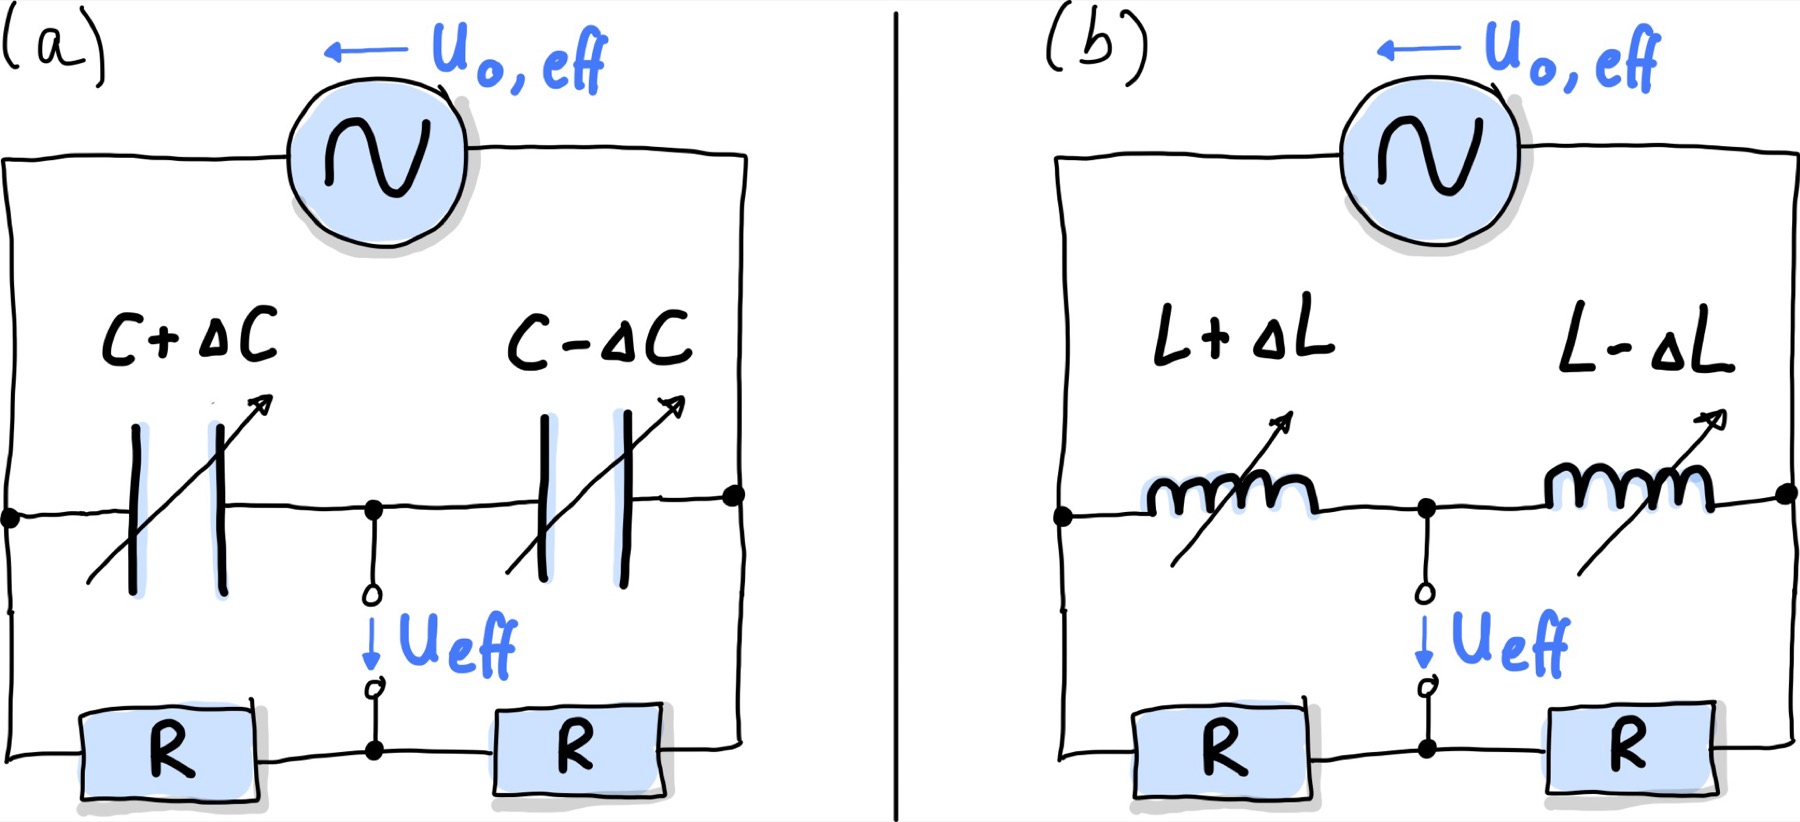 (a)
U₀, eff
C + ΔC
C - ΔC
Ueff
R
R
(b)
U₀, eff
L + ΔL
L - ΔL
Ueff
R
R